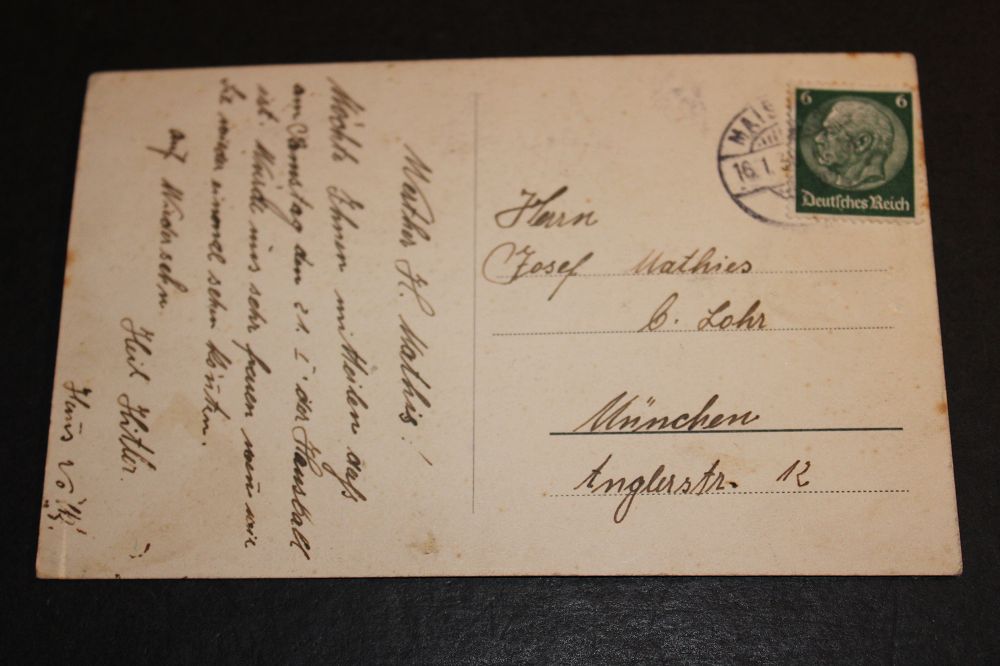 Werther H. Mathis!
Möchte Ihnen mitteilen daß
am Samstag den 21. I der Hausball
ist. Würde uns sehr freuen wenn wir
Sie wieder einmal sehen könten.
auf Wiedersehn.
Heil Hitler.
Haus
MAIS
16.1.
6 6
Deutsches Reich
Herrn
Josef Mathies
b. Lohr
München
Anglerstr. 12